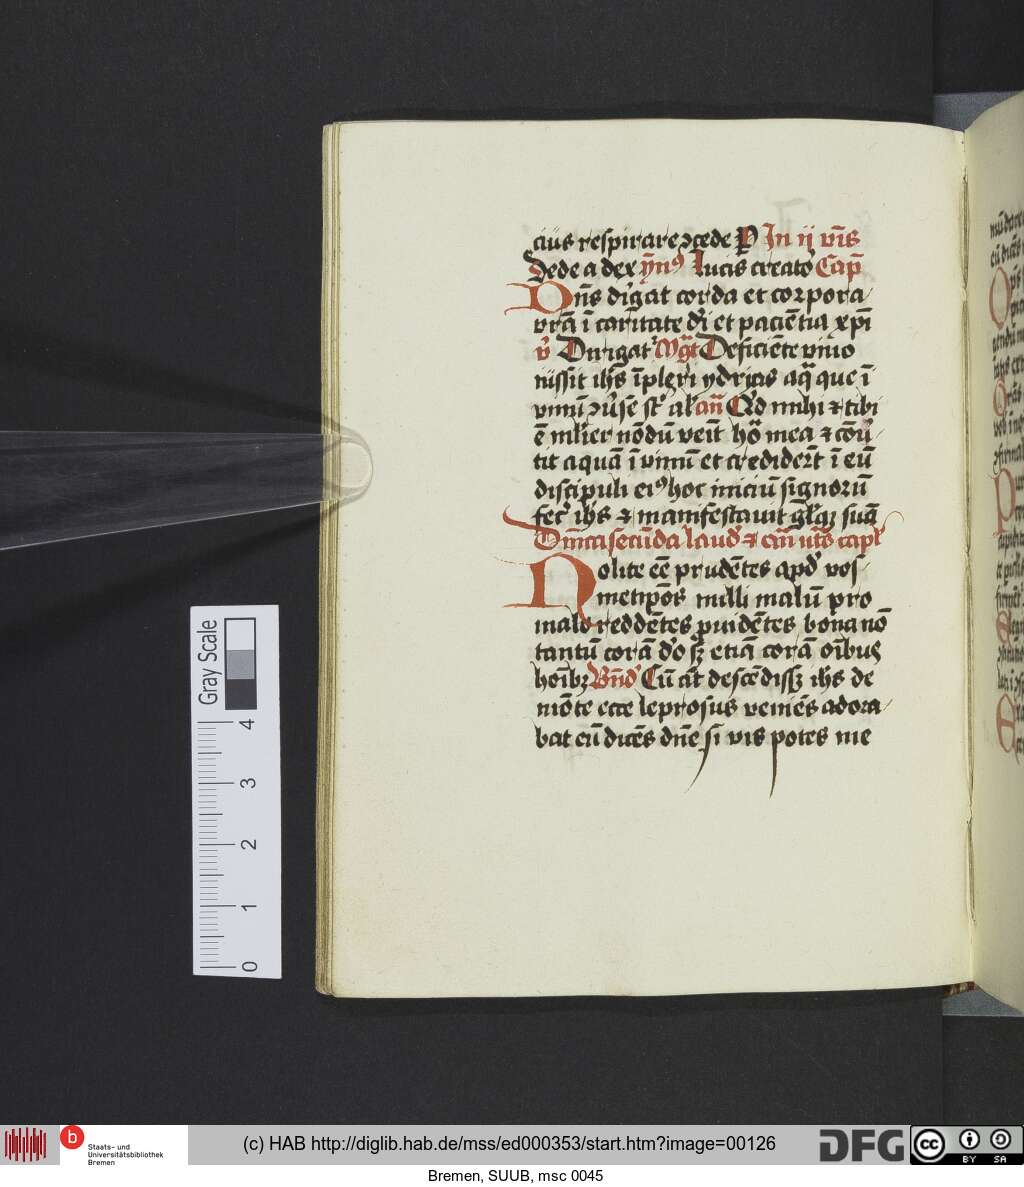 cius respirare ꝯcede P In ij vīs
Sede a dex ym̄ꝰ Lucis creato᷑ Cap̄
Dn̄s di᷑gat corda et corpora
vrā ī caritate di᷑ et paciētia xp̄i
v᷑ Dirigat᷑ Mg̃t Deficiēte vino
iussit ih̄s īpleri ydrias aq̄ que ī
vinū ꝯu᷑se st᷑ al᷑ an̄ Qd mihi ⁊ tibi
ē mlier nōdū veīt ho᷑ mea ⁊ cōu᷑
tit aquā ī vinū et crediderūt ī eū
discipuli eiꝰ hoc iniciū signorū
fec᷑ ih̄s ⁊ manifestauit gl̄qꝫ suā
Dn̄ica secūda laud᷑ ⁊ an̄ vt᷑s capl᷑
Nolite eē prudētes apd᷑ vos
metip̄os nulli malū pro
malo reddētes puidētes bona nō
tantū corā d᷑o sꝫ etiā corā oībus
hoībꝫ Bn̄d᷑ Cū aūt descēdissꝫ ih̄s de
mōte ecce leprosus veniēs adora
bat eū dicēs dn̄e si vis potes me
Gray Scale
4
3
2
1
0
b Staats- und
Universitätsbibliothek
Bremen
(c) HAB http://diglib.hab.de/mss/ed000353/start.htm?image=00126
DFG
cc BY SA
Bremen, SUUB, msc 0045